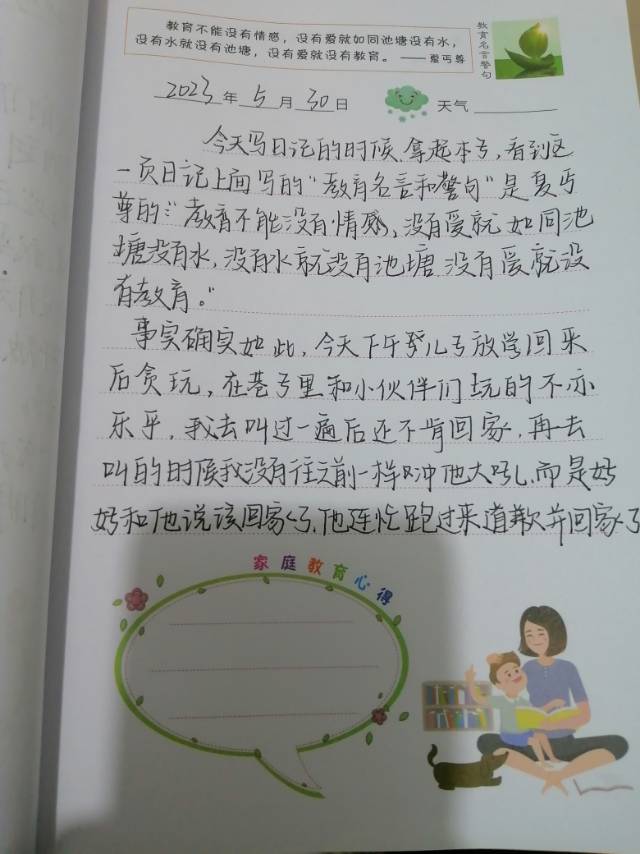 教育不能没有情感，没有爱就如同池塘没有水，
没有水就没有池塘，没有爱就没有教育。 ——夏丏尊
教育名言警句
2023年5月30日 天气
今天写日记的时候，拿起本子，看到这
一页日记上面写的“教育名言和警句”是夏丏
尊的：“教育不能没有情感，没有爱就如同池
塘没有水，没有水就没有池塘，没有爱就没
有教育。”
事实确实如此，今天下午我儿子放学回来
后贪玩，在巷子里和小伙伴们玩的不亦
乐乎，我去叫过一遍后还不肯回家，再去
叫的时候我没有往之前一样对他大吼，而是好
好和他说该回家了，他连忙跑过来道歉并回家了
家庭教育心得